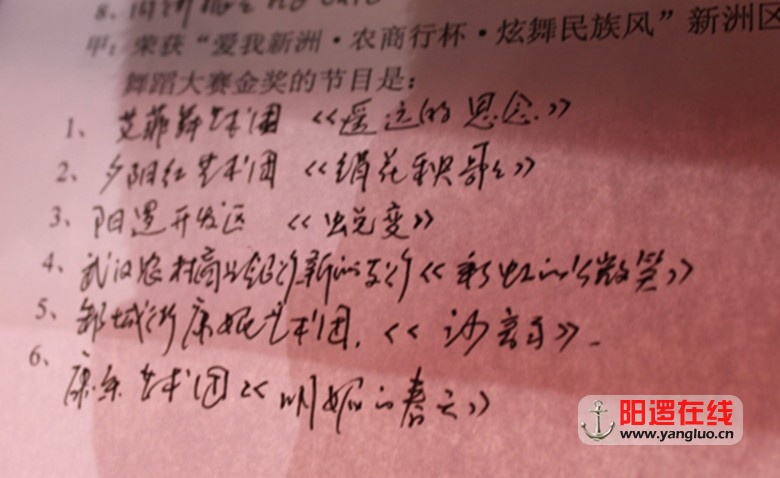 8、
甲：荣获“爱我新洲·农商行杯·炫舞民族风”新洲区
舞蹈大赛金奖的节目是：
1、艾菲舞艺术团《遥远的思念》
2、夕阳红艺术团《绢花秧歌》
3、阳逻开发区《蜕变》
4、武汉农村商业银行新洲支行《彩虹的微笑》
5、邾城街康妮艺术团《》
6、康乐艺术团《明媚的春天》
阳逻在线
www.yangluo.cn